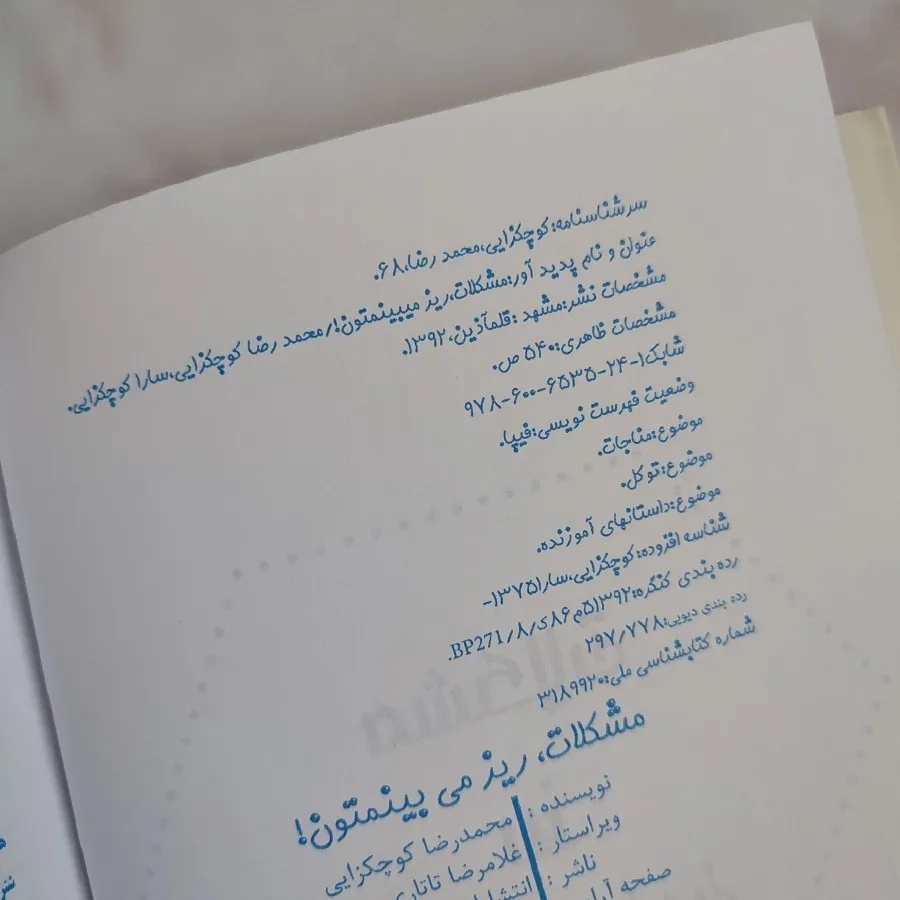 سرشناسنامه:کوچکزایی،محمد رضا،۶۸.
عنوان و نام پدید آور:مشکلات،ریز میبینمتون!/محمد رضا کوچکزایی،سارا کوچکزایی.
مشخصات نشر:مشهد :قلمآذین،۱۳۹۲.
مشخصات ظاهری:۵۴۰ص.
شابک۱-۲۴-۶۵۳۵-۶۰۰-۹۷۸
وضعیت فهرست نویسی:فیپا.
موضوع:مناجات.
موضوع:توکل.
موضوع:داستانهای آموزنده.
شناسه افزوده:کوچکزایی،سارا۱۳۷۵-
رده بندی کنگره:۵۱۳۹۲م۸۶ک/۸/BP271.
رده بندی دیویی:۲۹۷/۷۷۸
شماره کتابشناسی ملی:۳۱۸۹۹۲۰
مشکلات، ریز می بینمتون!
نویسنده : محمدرضا کوچکزایی
ویراستار : غلامرضا تاتاری
ناشر :
صفحه